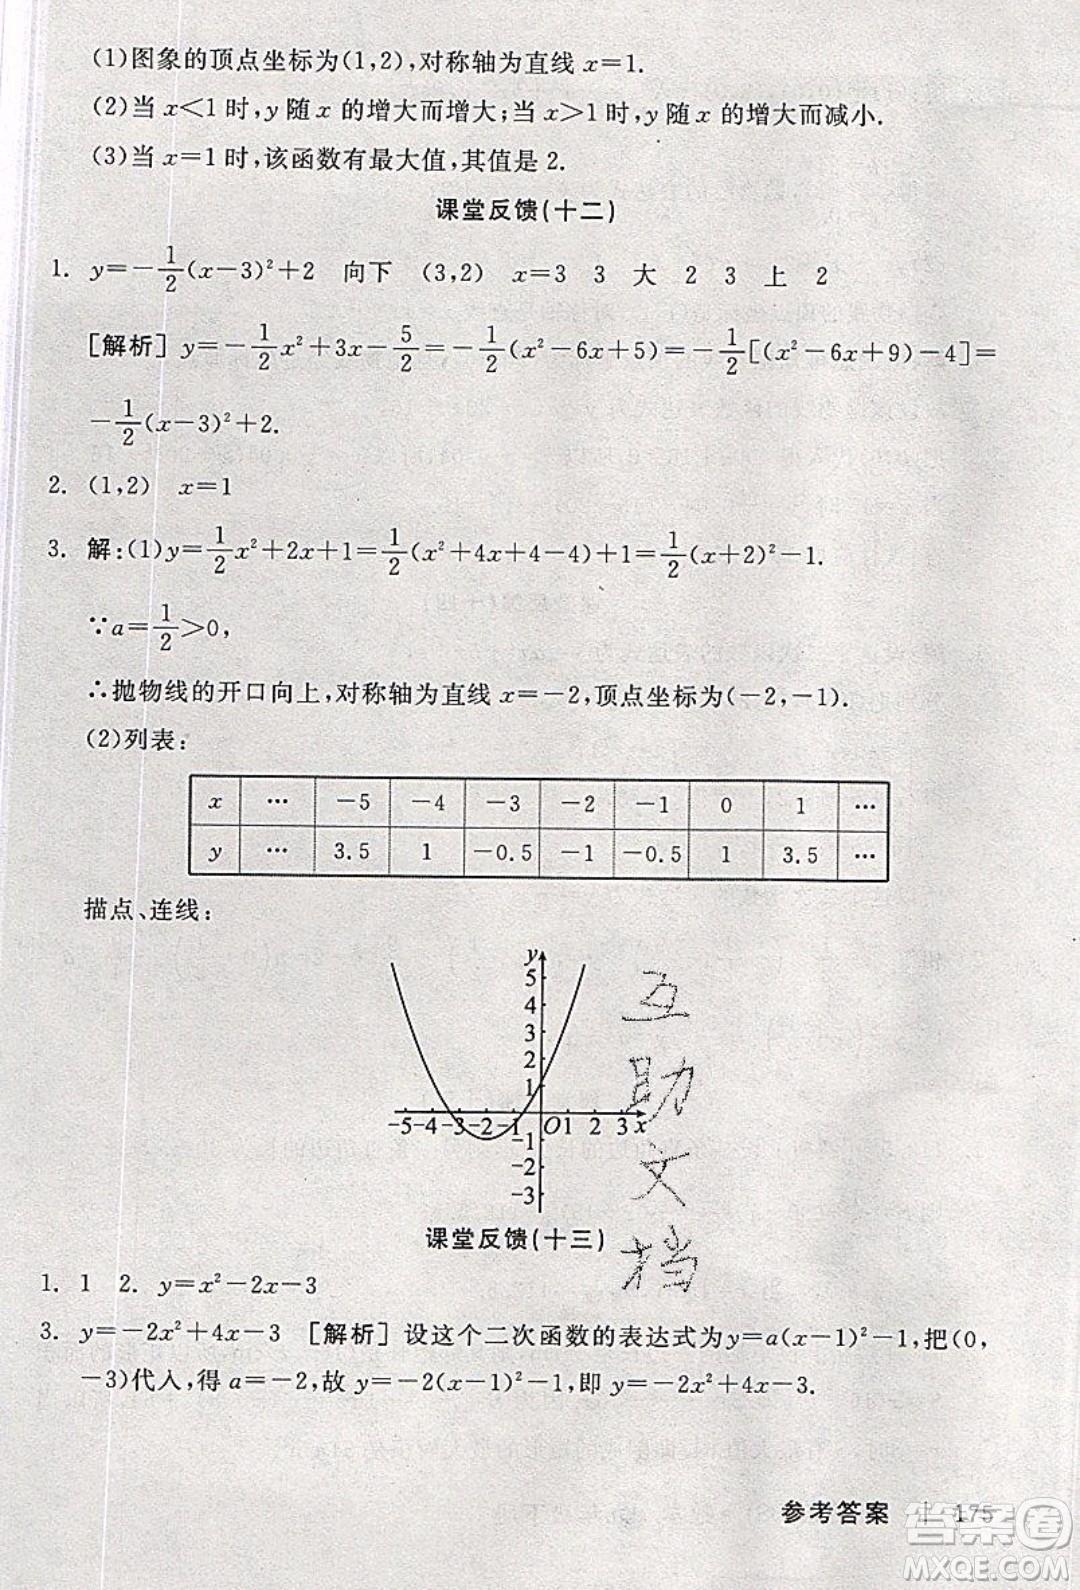 (1)图象的顶点坐标为(1,2),对称轴为直线 x=1.
(2)当 x<1 时,y 随 x 的增大而增大;当 x>1 时,y 随 x 的增大而减小.
(3)当 x=1 时,该函数有最大值,其值是 2.
课堂反馈(十二)
1. y=-1/2(x-3)²+2 向下 (3,2) x=3 3 大 2 3 上 2
[解析] y=-1/2x²+3x-5/2=-1/2(x²-6x+5)=-1/2[(x²-6x+9)-4]=
-1/2(x-3)²+2.
2. (1,2) x=1
3. 解:(1)y=1/2x²+2x+1=1/2(x²+4x+4-4)+1=1/2(x+2)²-1.
∵a=1/2>0,
∴抛物线的开口向上,对称轴为直线 x=-2,顶点坐标为(-2,-1).
(2)列表:
x … -5 -4 -3 -2 -1 0 1 …
y … 3.5 1 -0.5 -1 -0.5 1 3.5 …
描点、连线:
y
5
4
3
2
1
-5 -4 -3 -2 -1 O 1 2 3 x
-1
-2
-3
互
助
文
档
课堂反馈(十三)
1. 1 2. y=x²-2x-3
3. y=-2x²+4x-3 [解析] 设这个二次函数的表达式为y=a(x-1)²-1,把(0,
-3)代入,得 a=-2,故 y=-2(x-1)²-1,即 y=-2x²+4x-3.
参考答案 | 175
答案圈
MXQE.COM